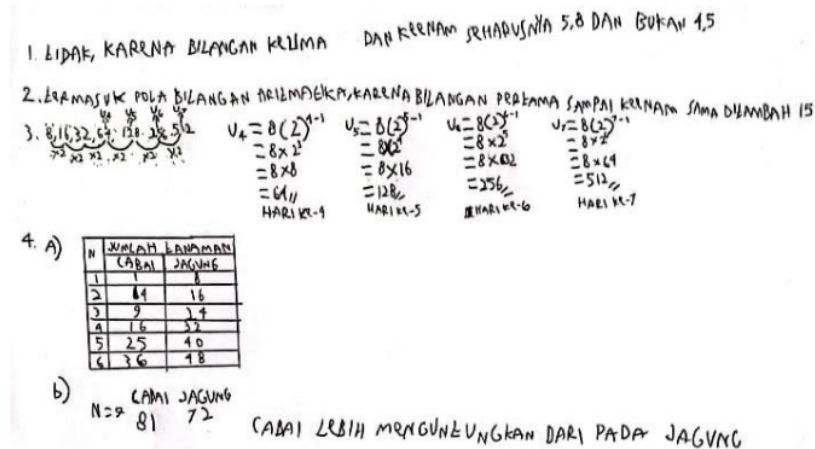 1. TIDAK, KARENA BILANGAN KELIMA DAN KEENAM SEHARUSNYA 5,8 DAN BUKAN 4,5
2. TERMASUK POLA BILANGAN ARITMATIKA, KARENA BILANGAN PERTAMA SAMPAI KEENAM SAMA DITAMBAH 15
U4 U5 U6 U7
3. 8,16,32,64,128,256,512
×2 ×2 ×2 ×2 ×2 ×2
U4=8(2)⁴⁻¹
=8×2³
=8×8
=64//
HARI KE-4
U5=8(2)⁵⁻¹
=8(2⁴
=8×16
=128//
HARI KE-5
U6=8(2)⁶⁻¹
=8×2⁵
=8×32
=256//
HARI KE-6
U7=8(2)⁷⁻¹
=8×2⁶
=8×64
=512//
HARI KE-7
4. A)
N JUMLAH TANAMAN
CABAI JAGUNG
1 1 8
2 4 16
3 9 24
4 16 32
5 25 40
6 36 48
b)
CABAI JAGUNG
N=9 81 72
CABAI LEBIH MENGUNTUNGKAN DARI PADA JAGUNG